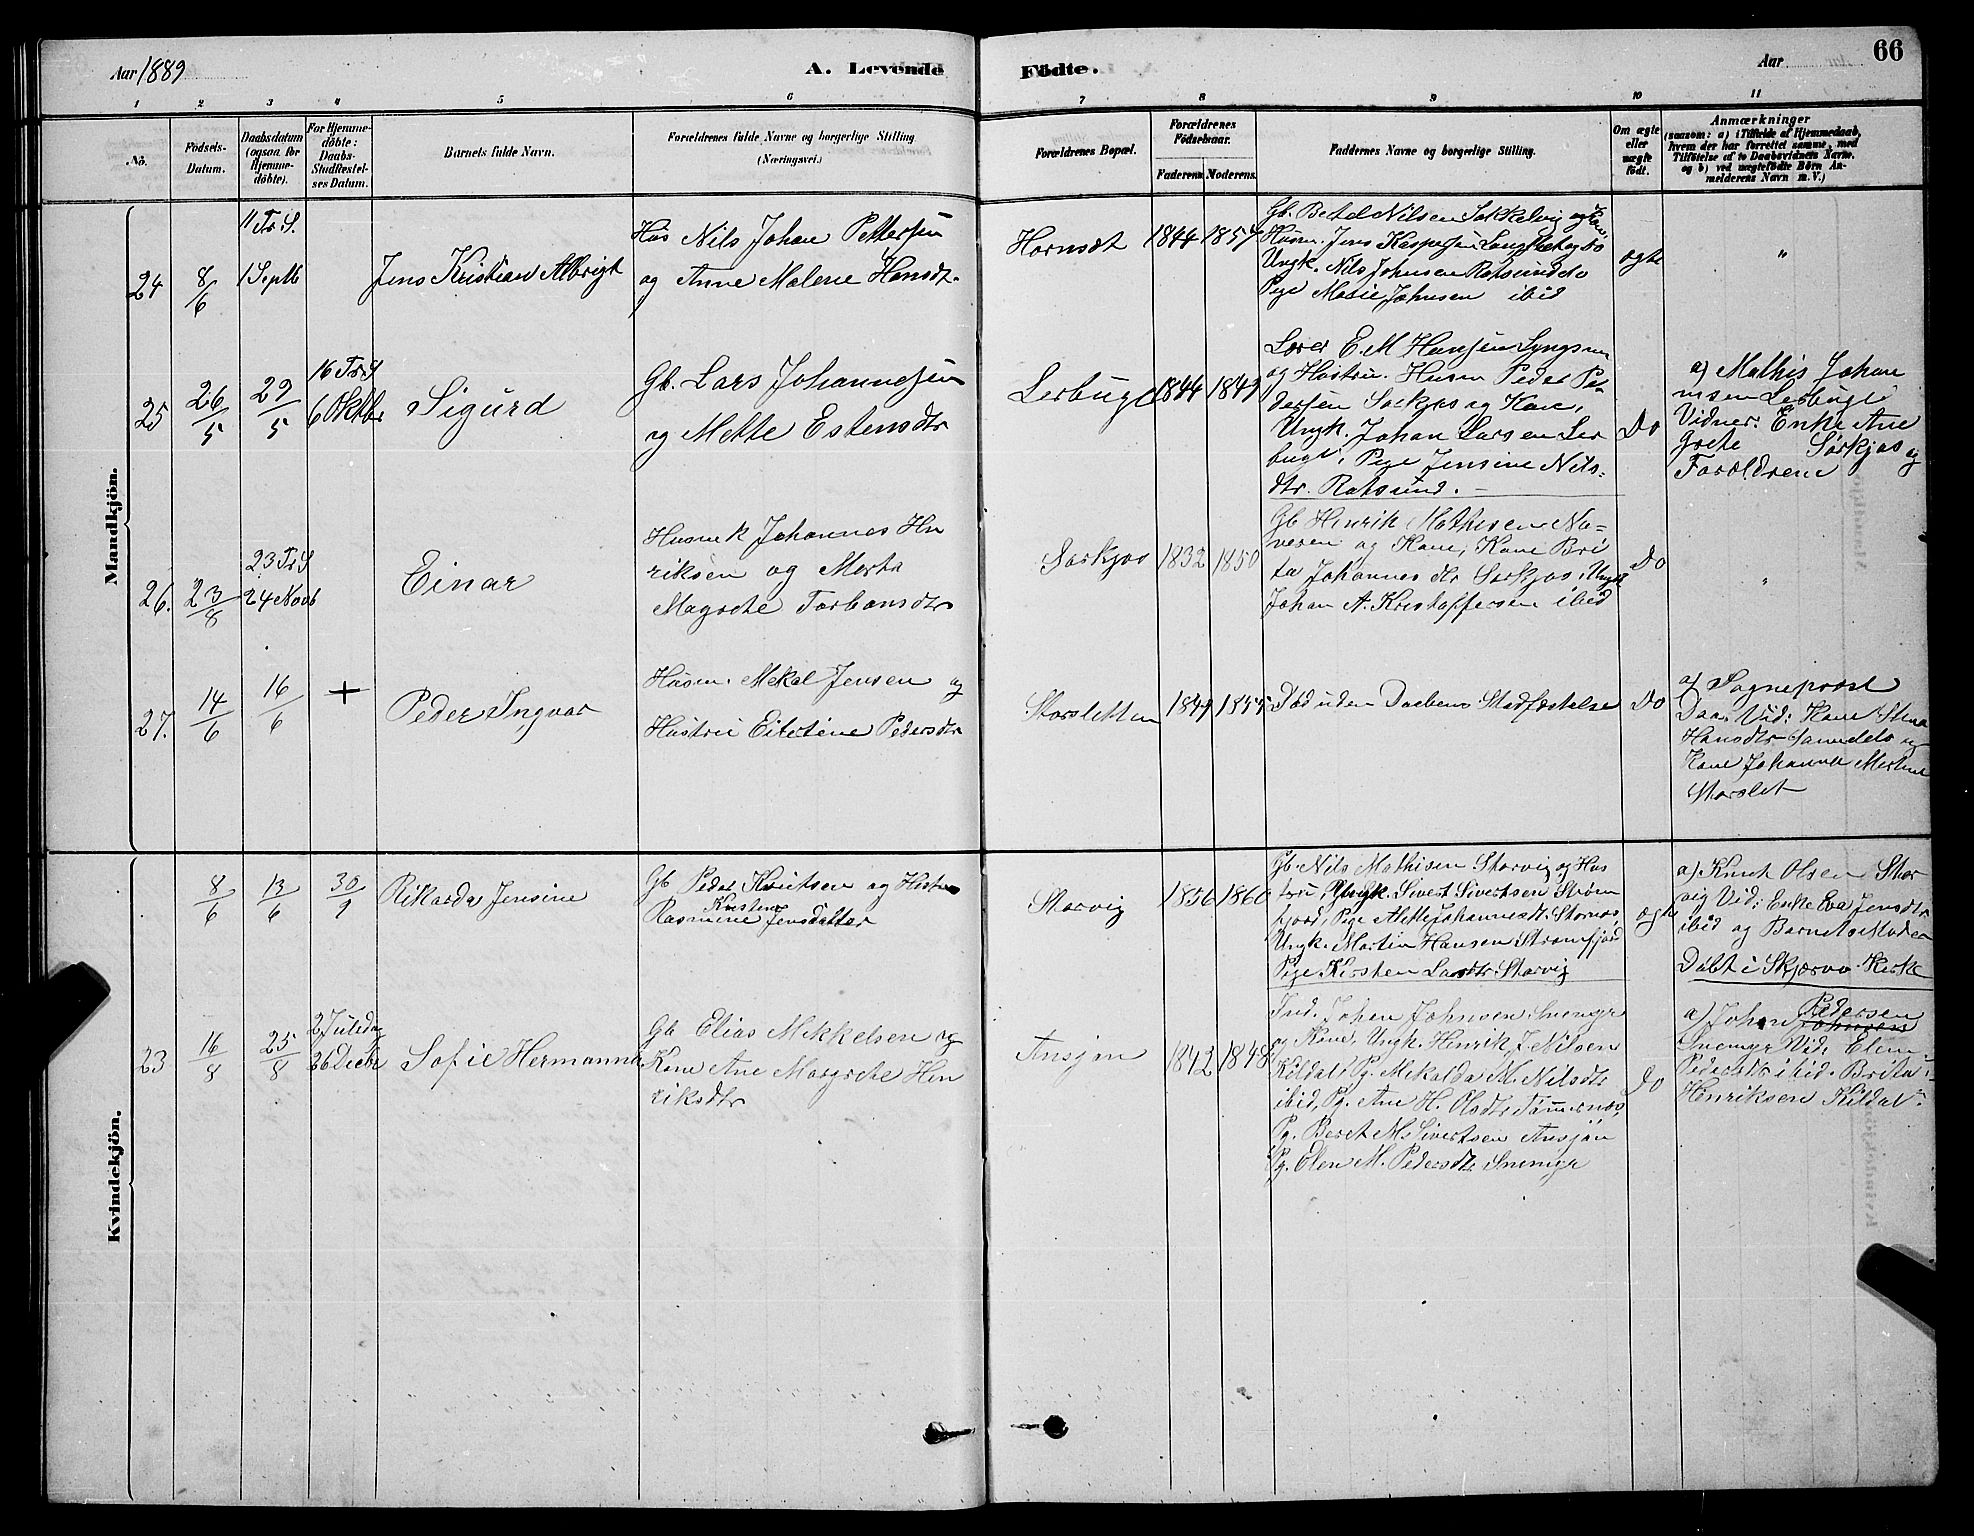 Aar 1889
A. Levende Födte.
Aar
66
1 2 3 4 5 6 7 8 9 10 11
No.
Födsels-Datum.
Daabsdatum (ogsaa for Hjemmedöbte).
For Hjemmedöbte: Daabs-Stadfestelses Datum.
Barnets fulde Navn.
Forældrenes fulde Navne og borgerlige Stilling
(Næringsvei.)
Forældrenes Bopæl.
Forældrenes Födselsaar.
Faderens Moderens
Faddernes Navne og borgerlige Stilling.
Om ægte eller uægte födt.
Anmærkninger
(saasom: a) i Tilfælde af Hjemmedaab, hvem der har forrettet samme, med Tilföielse af to Daabsvidners Navne, og b) ved uægtefödte Börn Anmelderens Navn m. V.)
Mandkjön.
24
8/6
11 Tr. S.
1 Septb
Jens Kristian Albrigt
Hus Nils Johan Pettersen
og Anne Malene Hansdt.
Hornset
1844 1857
Gb. Bertel Nilsen Sokkelvig og Kon,
Husm. Jens Kaspersen
Ungk. Nils Johnsen Rotsund do
Pige Marie Johnsen ibid
ægte
"
25
26/5
29/5
16 Tr. S
6 Oktbr
Sigurd
Gb. Lars Johannesen
og Mette Estensdtr
Lerbugt
1844 1849
Lærer E. M Hansen Lyngsun
og Hustru. Husm Peder Pe-
dersen Sørkjos og Kone,
Ungk. Johan Larsen Ler
bugt, Pige Jensine Nils-
dtr. Rotsund. -
Do
a) Mathis Johan
nsen Lerbugt
Vidner: Enke Ane
Grete Sørkjos og
Forældrene
26.
23/8
23 Tr. S
24 Novb
Einar
Husm k Johannes Hn
riksen og Marta
Magrete Torbensdtr
Sørkjos
1832 1850
Gb Henrik Mathisen Na-
veren og Kone, Kone Bri
ta Johannes dtr Sørkjos, Ungk
Johan A. Kristoffersen ibid
Do
"
27.
14/6
16/6
+
Peder Ingvar
Husm. Mekal Jensen og
Hustru Pedersdtr
Storsletten
1849 1855
Død uden Daabens Stadfæstelse
Do
a) Sogneprest
Daa. Vid: Kone Stina
Hansdtr og
Kone Johanna
Storslet
Kvindekjön.
8/6
13/6
30/9
Rikarda Jensine
Gb Peder Knutsen og Hustru
Kirsten
Rasmine Jensdatter
Storvig
1856 1860
Gb. Nils Mathisen Storvig og Hus
tru, Ungk. Sivert Sivertsen Strøm
fjord, Pige Mette Johannesdt. Stornes,
Ungk. Martin Hansen Strømfjord
Pige Kirsten Larsdtr. Storvig
ægte
a) Knut Olsen Stor
vig Vid: Enke Eva Jensdtr
ibid og Barnets Moder
Døbt i Skjærvø Kirke
23
16/8
25/8
2 Juledag
26 Decbr
Sofie Hermanna
Gb Elias Mikkelsen og
Kone Ane Margrete Hen
riksdtr
Ansjøn
1842 1848
Ind. Johan Johnsen Snemyr
og Kone, Ungk. Henrik J. Nilsen
Kildal, Pg. Mekalda M. Nilsdtr
ibid, Pg. Ane H. Olsdtr Tømernes,
Pg. Beret M. Sivertsen Ansjøn
Pg. Elen M. Pedersdtr Snemyr
Do
a) Johan Pedersen
Snemyr Vid: Elen
Pedersdtr ibid. Brita
Henriksen Kildal.